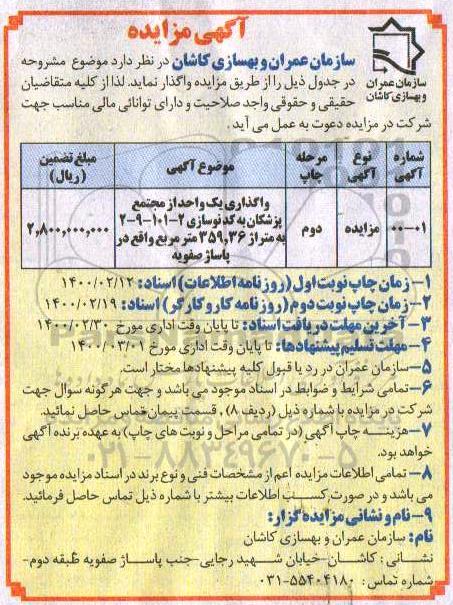 آگهی مزایده
سازمان عمران و بهسازی کاشان
سازمان عمران و بهسازی کاشان در نظر دارد موضوع مشروحه
در جدول ذیل را از طریق مزایده واگذار نماید. لذا از کلیه متقاضیان
حقیقی و حقوقی واجد صلاحیت و دارای توانائی مالی مناسب جهت
شرکت در مزایده دعوت به عمل می آید.
شماره آگهی | نوع آگهی | مرحله چاپ | موضوع آگهی | مبلغ تضمین (ریال)
۰۰-۰۱ | مزایده | دوم | واگذاری یک واحد از مجتمع پزشکان به کد نوسازی ۲-۱۰۱-۹-۲ به متراژ ۳۵۹,۳۶ متر مربع واقع در پاساژ صفویه | ۲,۸۰۰,۰۰۰,۰۰۰
۱- زمان چاپ نوبت اول (روزنامه اطلاعات) اسناد: ۱۴۰۰/۰۲/۱۲
۲- زمان چاپ نوبت دوم (روزنامه کار و کارگر) اسناد: ۱۴۰۰/۰۲/۱۹
۳- آخرین مهلت دریافت اسناد: تا پایان وقت اداری مورخ ۱۴۰۰/۰۲/۳۰
۴- مهلت تسلیم پیشنهادها: تا پایان وقت اداری مورخ ۱۴۰۰/۰۳/۰۱
۵- سازمان عمران در رد یا قبول کلیه پیشنهادها مختار است.
۶- تمامی شرایط و ضوابط در اسناد موجود می باشد و جهت هرگونه سوال جهت
شرکت در مزایده با شماره ذیل (ردیف ۸)، قسمت پیمان تماس حاصل نمائید.
۷- هزینه چاپ آگهی (در تمامی مراحل و نوبت های چاپ) به عهده برنده آگهی
خواهد بود.
۸- تمامی اطلاعات مزایده اعم از مشخصات فنی و نوع برند در اسناد مزایده موجود
می باشد و در صورت کسب اطلاعات بیشتر با شماره ذیل تماس حاصل فرمائید.
۹- نام و نشانی مزایده گزار:
نام: سازمان عمران و بهسازی کاشان
نشانی: کاشان-خیابان شهید رجایی-جنب پاساژ صفویه طبقه دوم-
شماره تماس: ۵۵۴۰۴۱۸۰-۰۳۱
۰۲۱-۸۸۳۴۹۶۷۰-۵